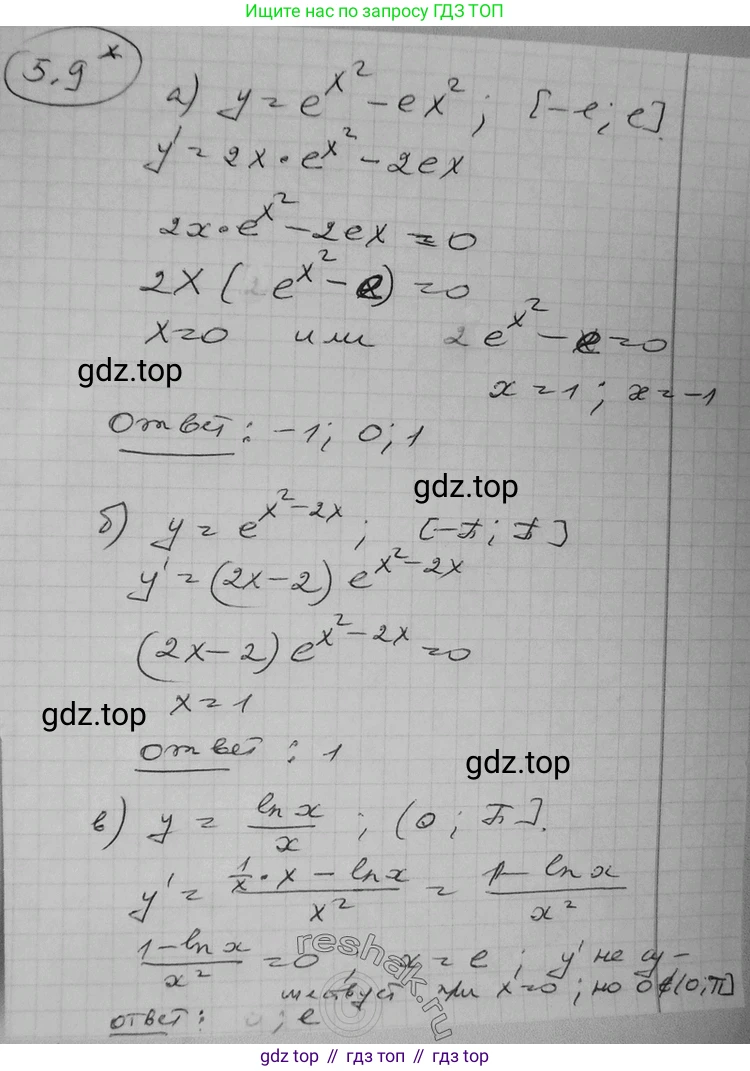 Ищите нас только по запросу ГДЗ ТОП
5.9*
а) y = e^{x^2} - ex^2 ; [-e; e].
y' = 2x · e^{x^2} - 2ex
2x · e^{x^2} - 2ex = 0
2x ( e^{x^2} - e) = 0
x = 0 или e^{x^2} - e = 0
gdz.top
x = 1 ; x = -1
Ответ: -1; 0; 1
gdz.top
б) y = e^{x^2 - 2x} ; [-π; π]
y' = (2x - 2) e^{x^2 - 2x}
(2x - 2) e^{x^2 - 2x} = 0
x = 1
gdz.top
Ответ : 1
gdz.top
в) y = \frac{ln x}{x} ; (0 ; π].
y' = \frac{\frac{1}{x} · x - ln x}{x^2} = \frac{1 - ln x}{x^2}
\frac{1 - ln x}{x^2} = 0 , x = e ; y' не су-
ществует при x = 0 ; но 0 ∉ (0; π]
ответ: e
reshak.ru
gdz.top // гдз.топ // gdz.top